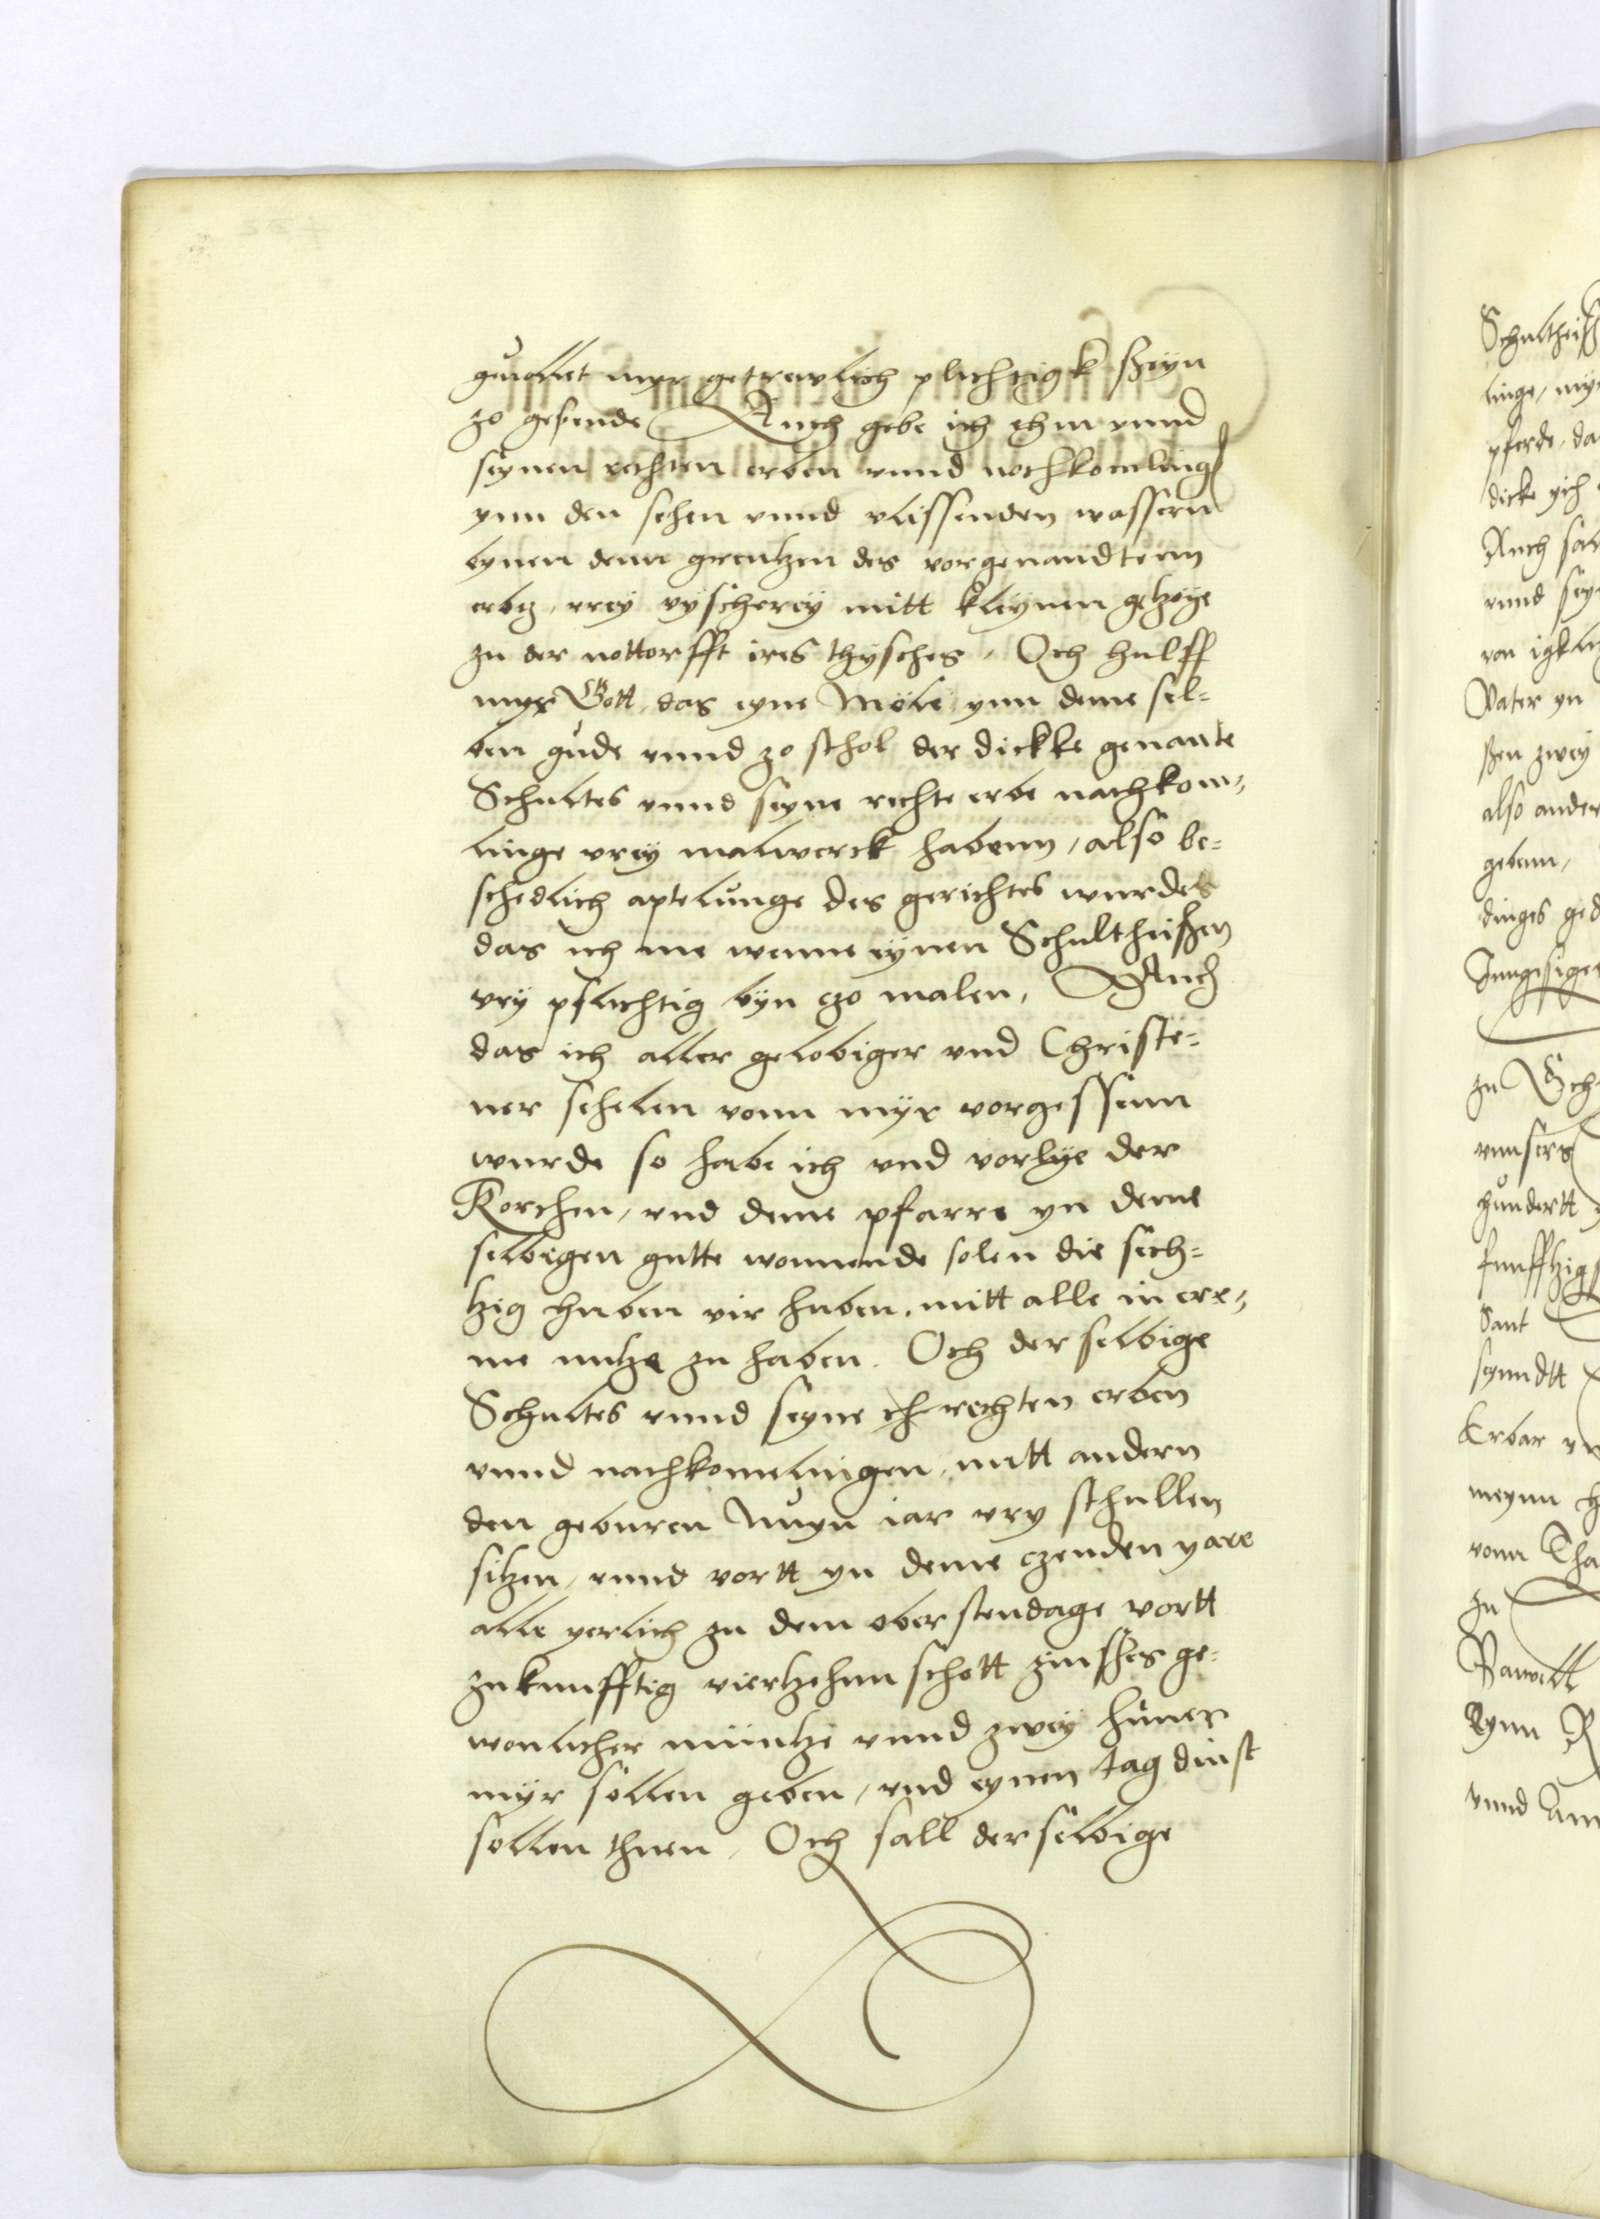 myr getrewlich plichtigk ßeyn
zo gebende Auch gebe ich ehm vnnd
seynen rechten erben vnnd nochkomling
ynn den sehen vnnd vlissenden wassern
bynen denn grentzen des vorgenandtenn
erbz, vrey vyscherey mitt kleynen getzoye
zu der nottorfft ires thysches, Och hulff
myr Gott, das eyne Möle ynn deme sel-
ben gude vnnd zo schol der dickke genante
Schultes vnnd seyne rechte erbe nachkom-
linge vrey malwerck habenn, also be-
schedlich aptelunge des gerichtes wurdes
das ich me wenne eynen Schultheißen
vry pflichtig byn czo malen, Auch
das ich aller gelobiger vnd Christe-
ner sehelen vonn myr vorgessenn
wurde so habe ich vnd vorlye der
Korchen, vnd deme pfarre yn deme
selbigen gutte wonnende solen die sech-
tzig huben vir huben, mitt alle in ere-
me nutze zu haben. Och der selbige
Schultes vnnd seyne rechten erben
vnnd nachkomelingen, mitt andern
den geburen Nuyn iar vry schullen
sitzen, vnnd vortt yn deme czenden yare
alle yerlich zu dem oberstendage vortt
zukunfftig viertzehnn schott zinßes ge-
wonlicher müntze vnnd zwey huner
myr sollen geben, vnd eynen tag dinst
sollen thuen, Och sall derselbige
Schultheiß
linge, myr
pferde, da
dicke ych
Auch sal
vnnd sey
von
Vater yn
ßen zwey
also ander
gebenn,
dinges ged
Inngesigel
zu
vnnsers
hundertt
funfftzig
Sant
seyndtt
Erbar vn
meynn
vonn
zu
vnnd